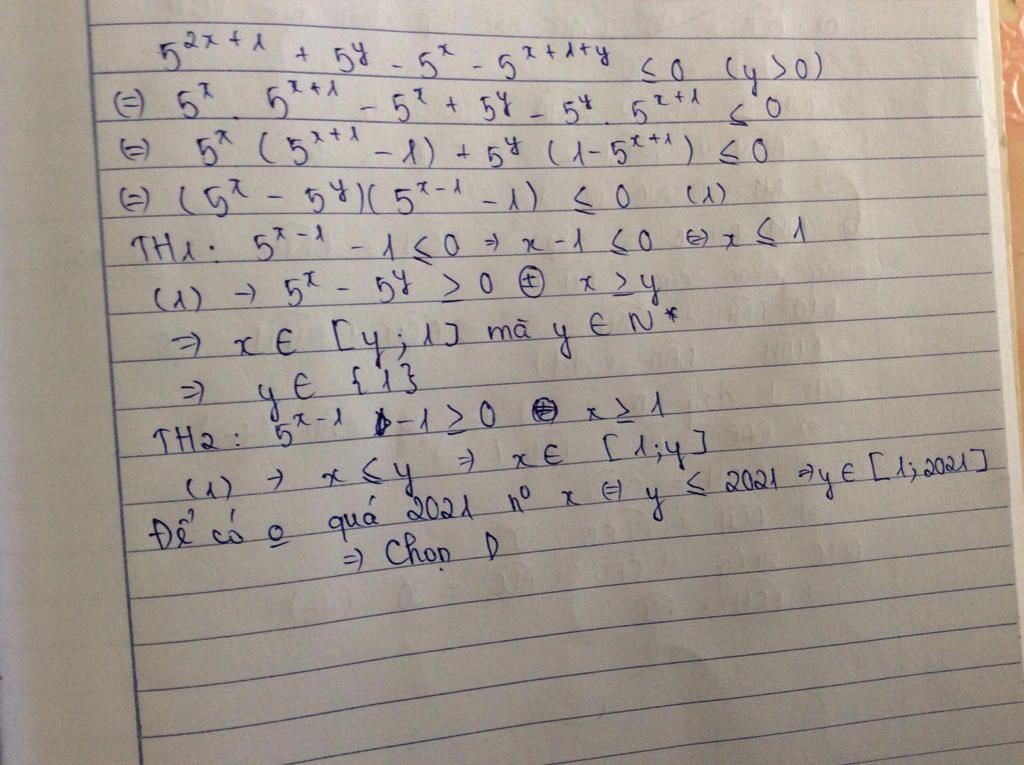 5^{2x+1} + 5^y - 5^x - 5^{x+1+y} ≤ 0 (y > 0)
(=) 5^x . 5^{x+1} - 5^x + 5^y - 5^y . 5^{x+1} ≤ 0
(=) 5^x (5^{x+1} - 1) + 5^y (1 - 5^{x+1}) ≤ 0
(=) (5^x - 5^y)(5^{x-1} - 1) ≤ 0 (1)
TH1: 5^{x-1} - 1 ≤ 0 ⇒ x - 1 ≤ 0 ⇔ x ≤ 1
(1) → 5^x - 5^y ≥ 0 ⇔ x ≥ y
⇒ x ∈ [y; 1] mà y ∈ N*
⇒ y ∈ {1}
TH2: 5^{x-1} - 1 ≥ 0 ⇔ x ≥ 1
(1) → x ≤ y ⇒ x ∈ [1; y]
Để có o quá 2021 n^o x ⇔ y ≤ 2021 ⇒ y ∈ [1; 2021]
⇒ Chọn D